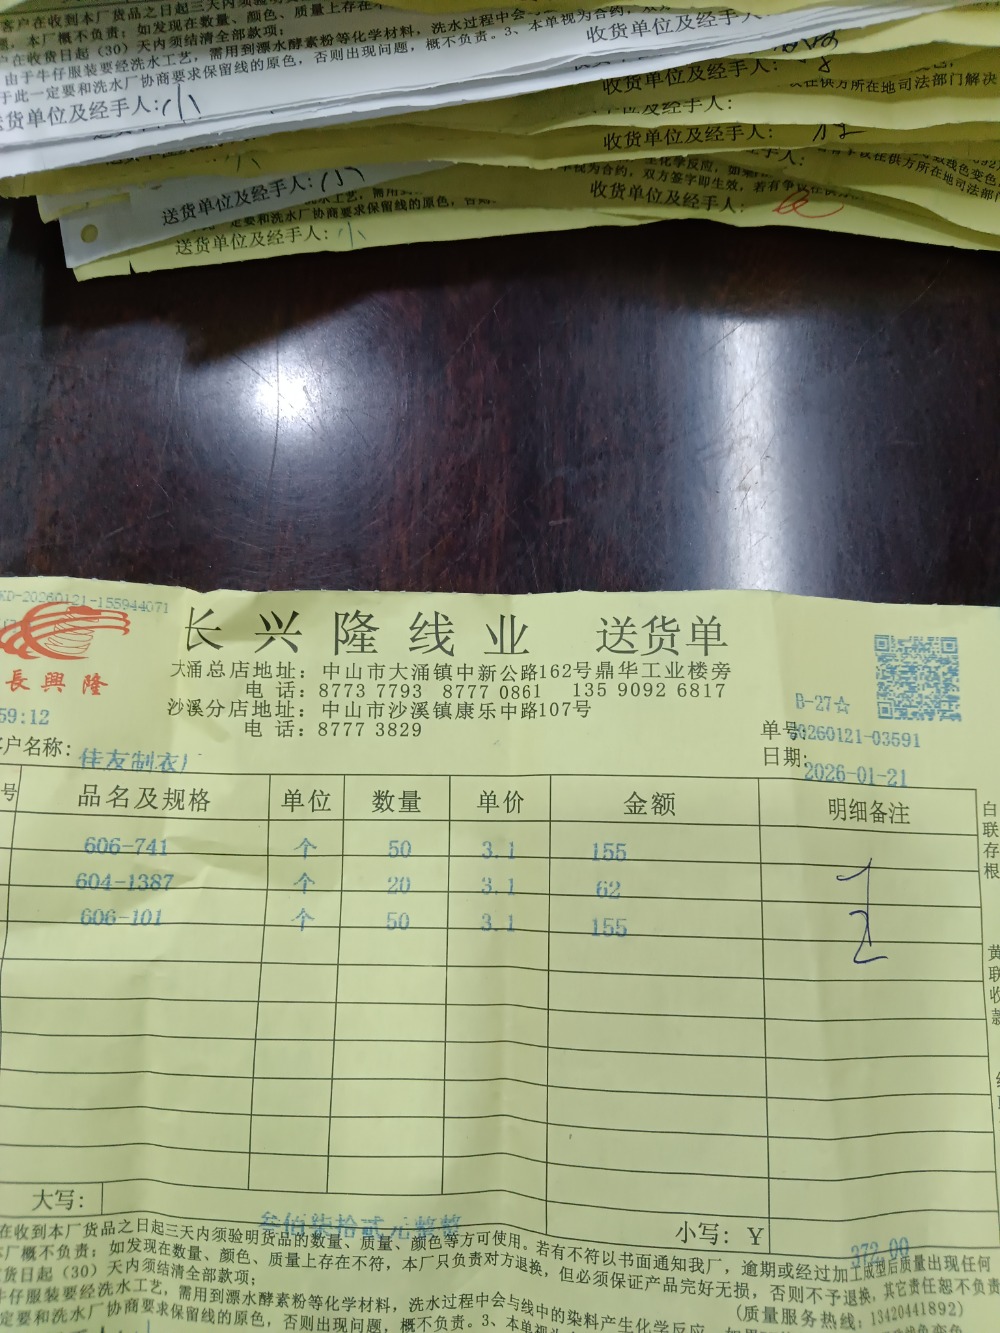 客户在收到本厂货品之日起三天内须验
题,本厂概不负责;如发现在数量、颜色、质量上存在不
户在收货日起(30)天内须结清全部款项;
由于牛仔服装要经洗水工艺,需用到漂水酵素粉等化学材料,洗水过程中会
于此一定要和洗水厂协商要求保留线的原色,否则出现问题,概不负责。3、本单视为合约,
送货单位及经手人:小
收货单位及经手
收货单位及经手人:
在供方所在地司法部门解决
位及经手人:
收货单位及经手人:
手人:
送货单位及经手人:
收货单位及经手人:
定要和洗水厂协商要求保留线的原色,
送货单位及经手人:小
KD-20260121-155944071
長興隆
长兴隆线业 送货单
大涌总店地址:中山市大涌镇中新公路162号鼎华工业楼旁
电 话:8773 7793 8777 0861 135 9092 6817
沙溪分店地址:中山市沙溪镇康乐中路107号
电 话:8777 3829
59:12
B-27☆
单号:20260121-03591
客户名称:佳友制衣厂
日期:2026-01-21
号 品名及规格 单位 数量 单价 金额 明细备注
606-741 个 50 3.1 155
604-1387 个 20 3.1 62
606-101 个 50 3.1 155
白联存根
黄联收款
大写:叁佰柒拾贰元整整
小写:¥ 372.00
在收到本厂货品之日起三天内须验明货品的数量、质量、颜色等方可使用。若有不符以书面通知我厂,逾期或经过加工成型后质量出现任何
本厂概不负责;如发现在数量、颜色、质量上存在不符,本厂只负责对方退换,但必须保证产品完好无损,否则不予退换,其它责任恕不负责
货日起(30)天内须结清全部款项;
(质量服务热线:13420441892)
牛仔服装要经洗水工艺,需用到漂水酵素粉等化学材料,洗水过程中会与线中的染料产生化学反应,如果
定要和洗水厂协商要求保留线的原色,否则出现问题,概不负责。3、本单视为